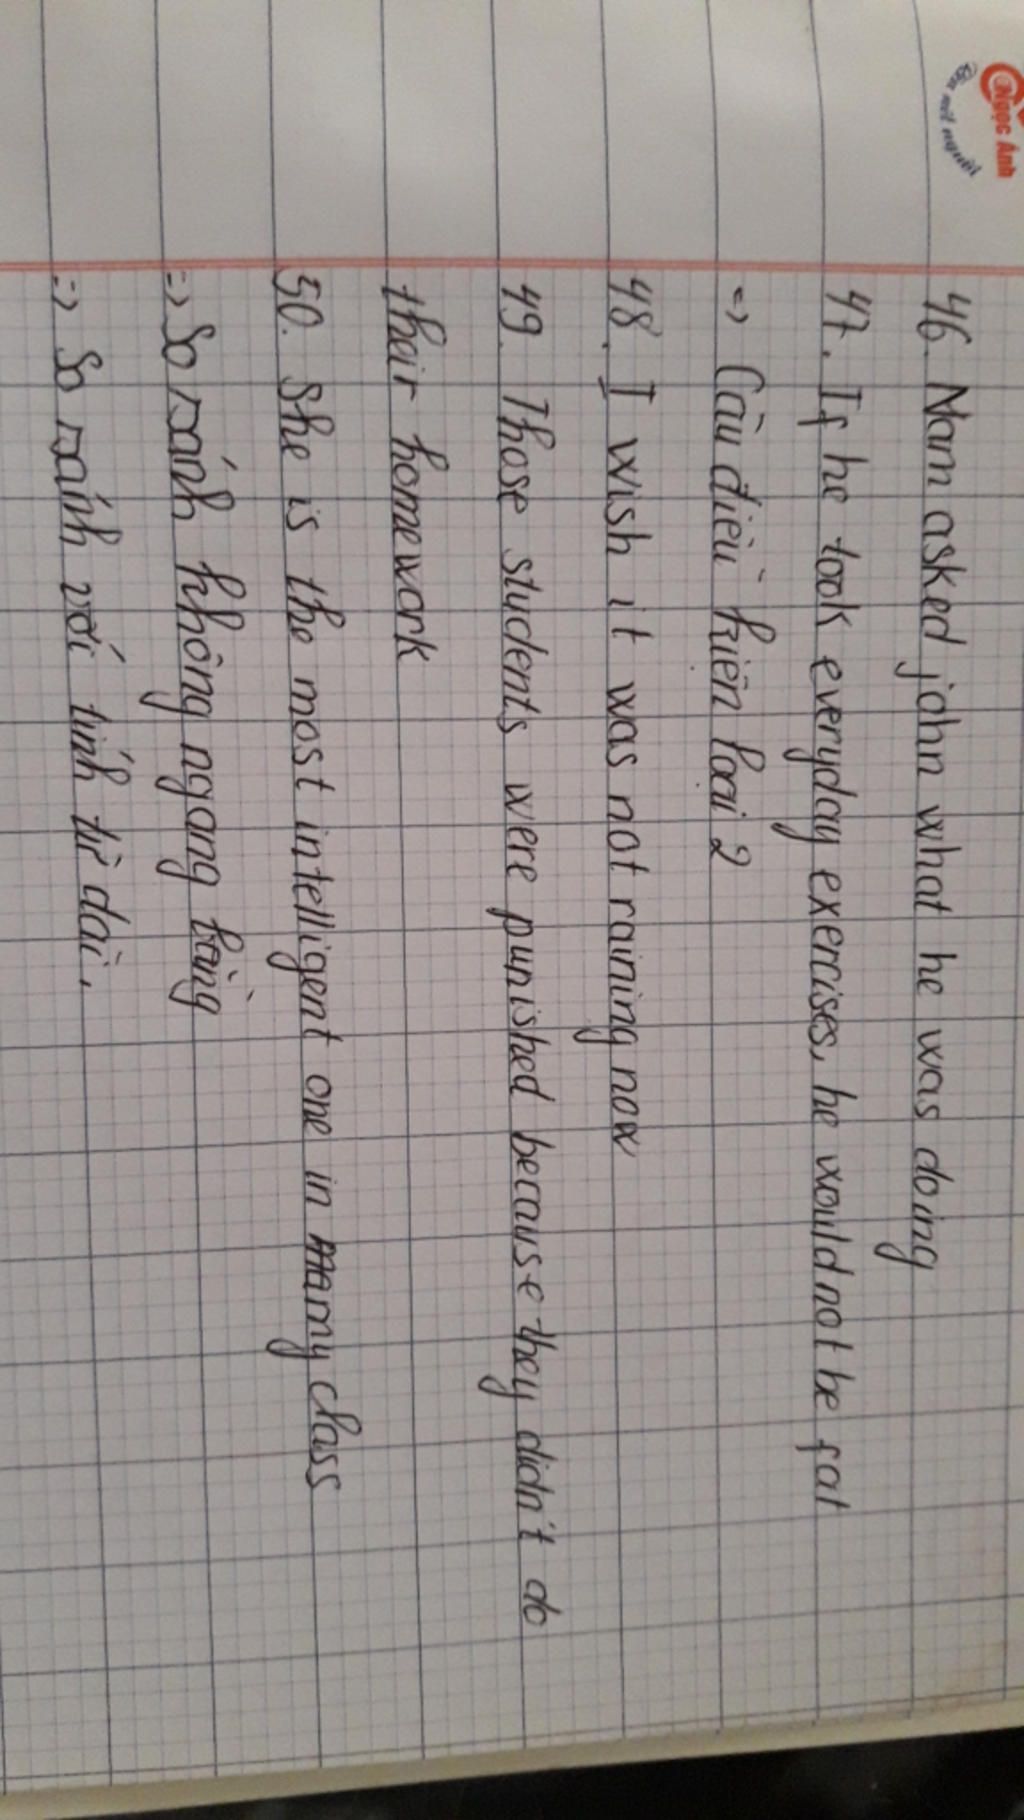 Ngọc Ánh
46. Nam asked john what he was doing
47. If he took everyday exercises, he would not be fat
=> Câu điều kiện loại 2
48. I wish it was not raining now
49. Those students were punished because they didn't do
their homework
50. She is the most intelligent one in my class
=> So sánh không ngang bằng
=> So sánh với tính từ dài.